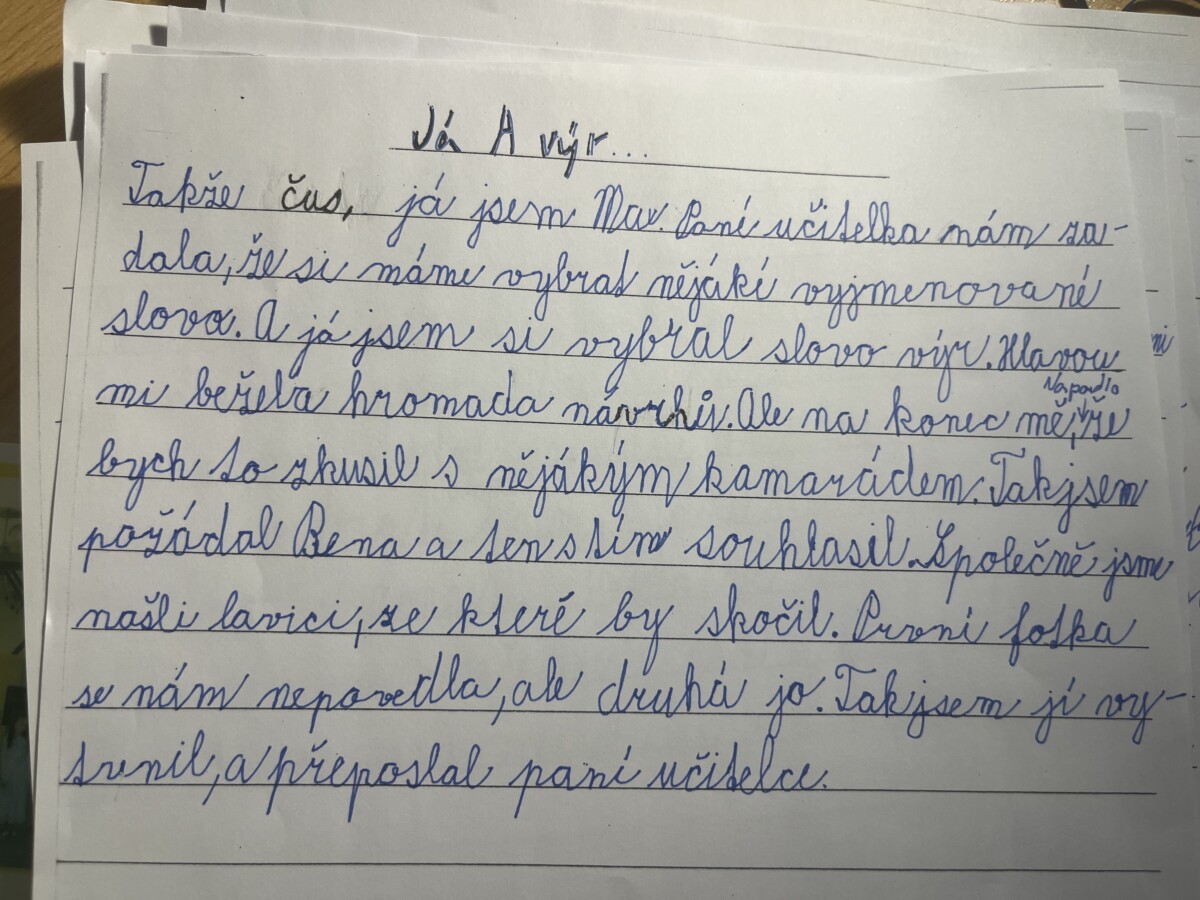 Já A výr...
Takže čus, já jsem Max. Paní učitelka nám za-
dala, že si máme vybrat nějáké vyjmenované
slovo. A já jsem si vybral slovo výr. Hlavou
mi bežela hromada návrhů. Ale na konec mě,
Napadlo
že
bych to zkusil s nějákým kamarádem. Tak jsem
požádal Bena a ten s tím souhlasil. Společně jsme
našli lavici, ze které by skočil. První fotka
se nám nepovedla, ale druhá jo. Tak jsem jí vy-
tvnil, a přeposlal paní učitelce.